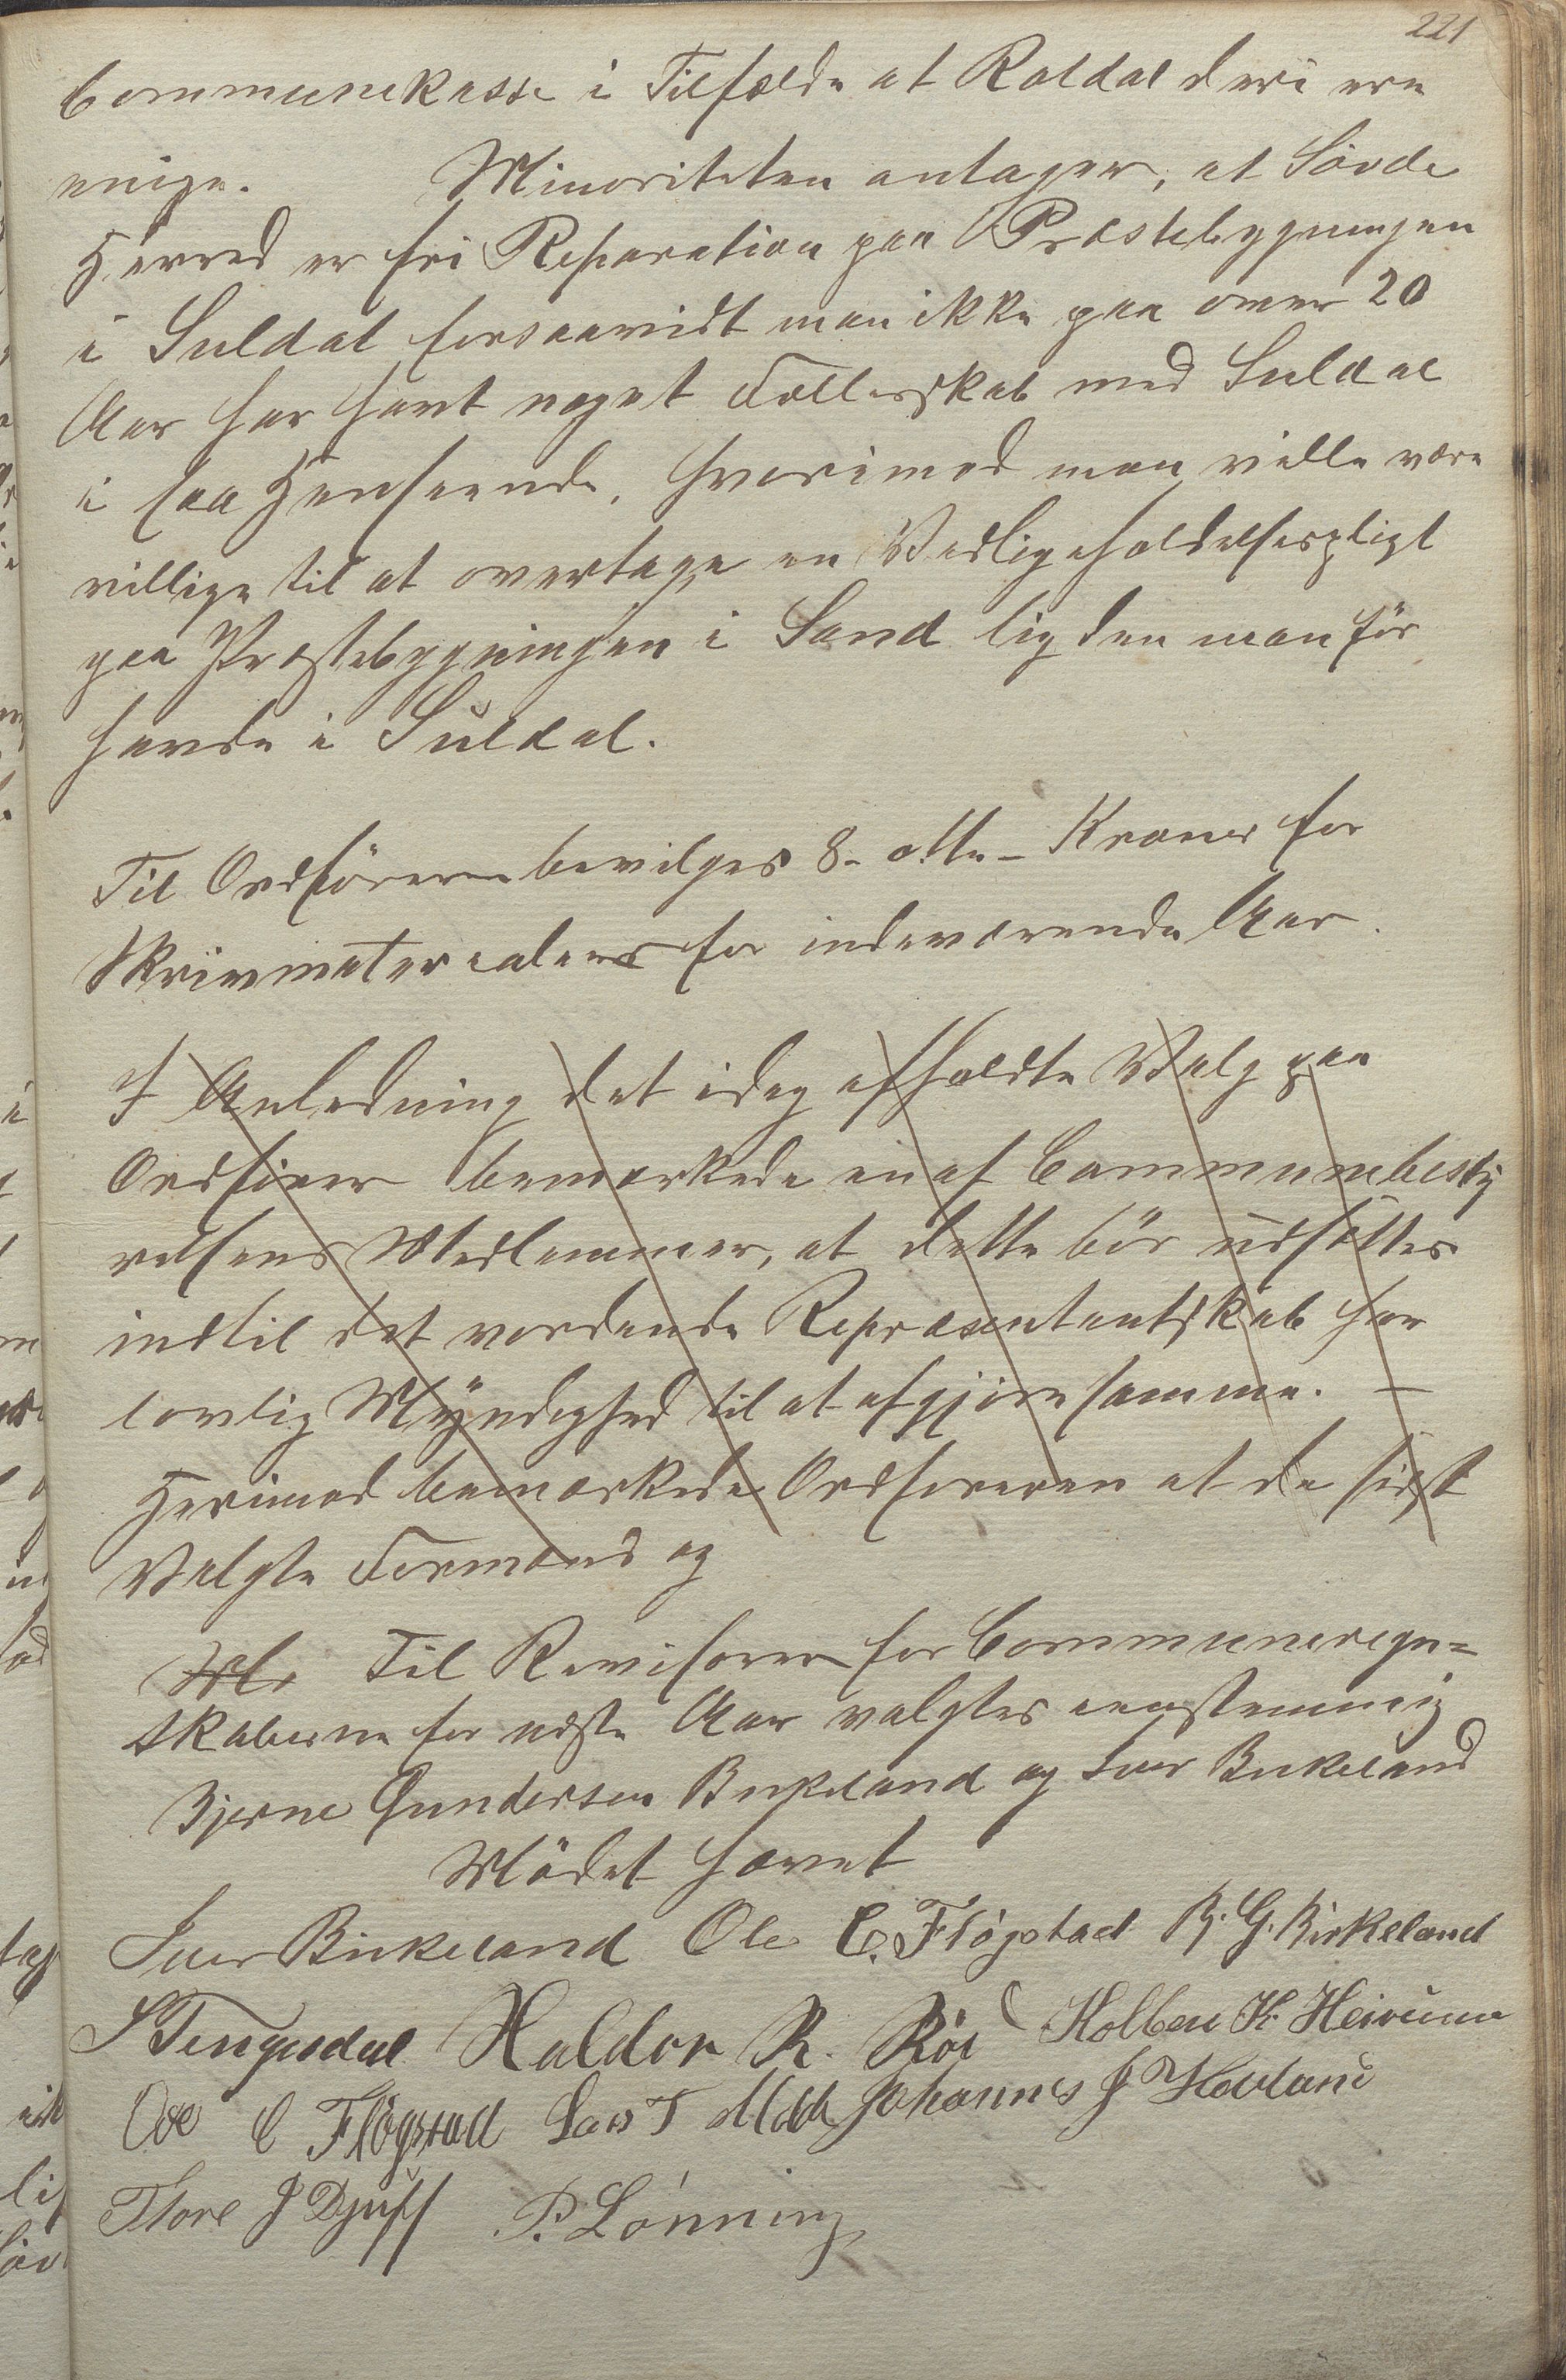 221
Communekasse i Tilfælde at Roldal deri ere
enige. Minoriteten antager, at Søvde
Herred er fri Reparation paa Præstebygningen
i Suldal forsaavidt man ikke paa over 20
Aar har havt noget Fællesskab med Suldal
i saa Henseende, hvorimod man ville være
villige til at overtage en Vedligeholdelsespligt
paa Præstebygningen i Sand lig den man før
havde i Suldal.
Til Ordføreren bevilges 8 - otte - Kroner for
Skrivmaterealer for indeværende Aar.
I Anledning det idag afholdte Valg paa
Ordfører bemærkede en af Communebesty
relsens Medlemmer, at dette bør udsættes
indtil det vordende Repræsentantskab har
lovlig Myndighed til at afgjøre samme. —
Herimod bemærkede Ordføreren at de sidst
Valgte Formænd og
Til Revisorer for Communeregn=
skaberne for næste Aar valgtes eenstemmig
Bjerne Gundersen Birkeland og Iver Birkeland
Mødet hævet
Iver Birkeland Ole C. Fløgstad B. G. Birkeland
S Tengesdal Haldor R. Røi Kolben K. Heiruem
Ove C Fløgstad Lars T Johannes J Hovland
Tore J Djuff P. Lønning